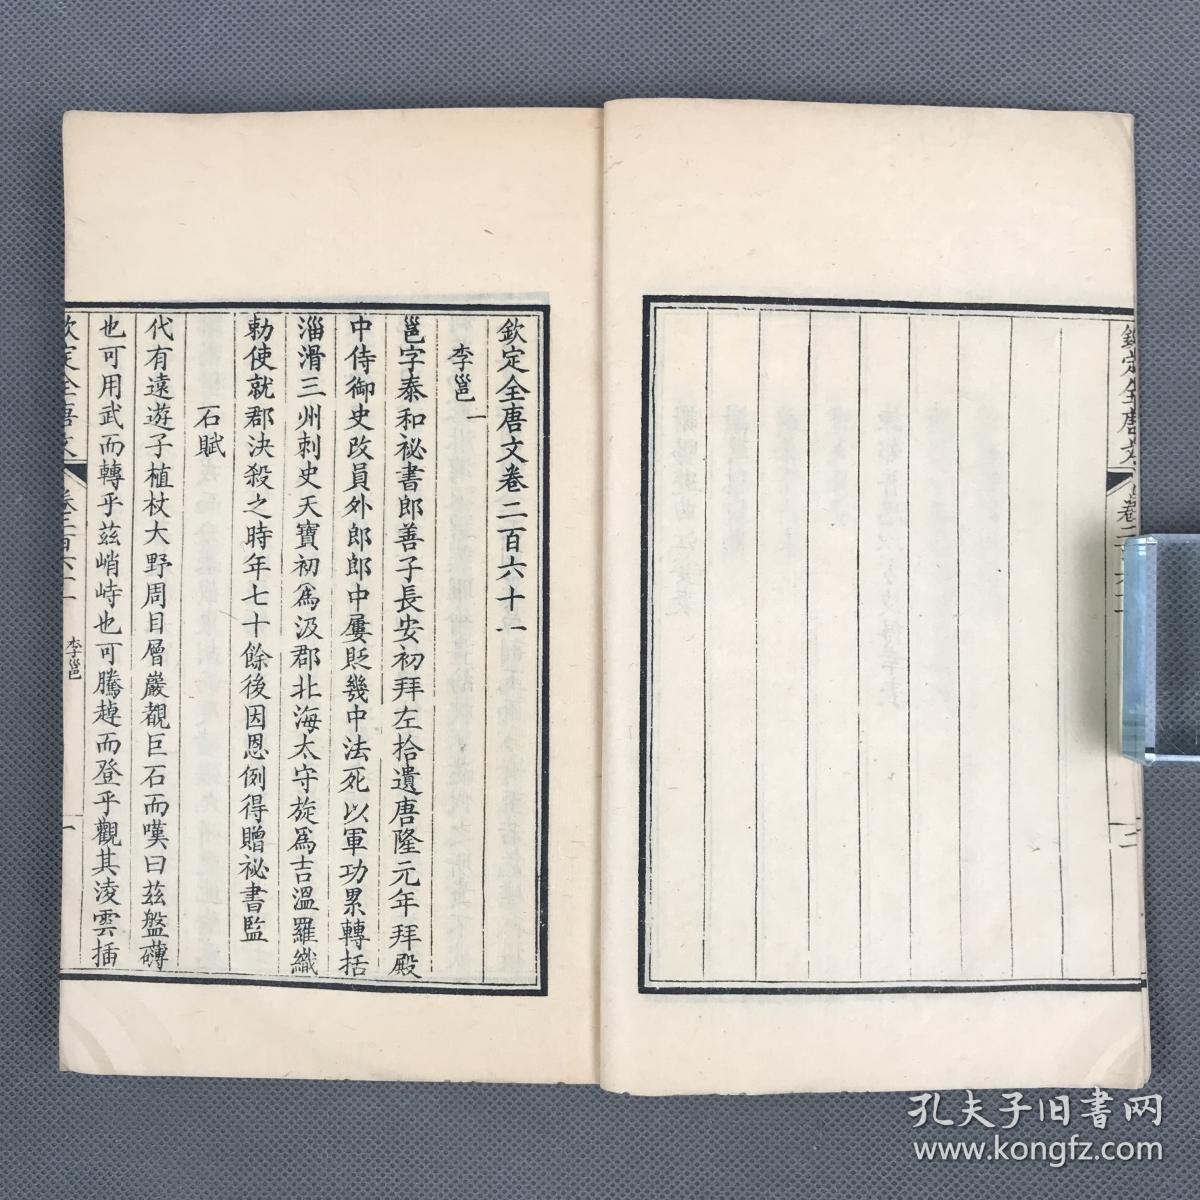 欽定全唐文卷二百六十一
李邕一
邕字泰和祕書郎善子長安初拜左拾遺唐隆元年拜殿
中侍御史改員外郎郎中屢貶幾中法死以軍功累轉括
淄滑三州刺史天寶初爲汲郡北海太守旋爲吉溫羅織
勅使就郡決殺之時年七十餘後因恩例得贈祕書監
石賦
代有遠遊子植杖大野周目層巖覩巨石而嘆曰茲盤礴
也可用武而轉乎茲峭峙也可騰趠而登乎觀其淩雲插
欽定全唐文
卷二百六十一
李邕
一
欽定全唐文
孔夫子旧书网
www.kongfz.com